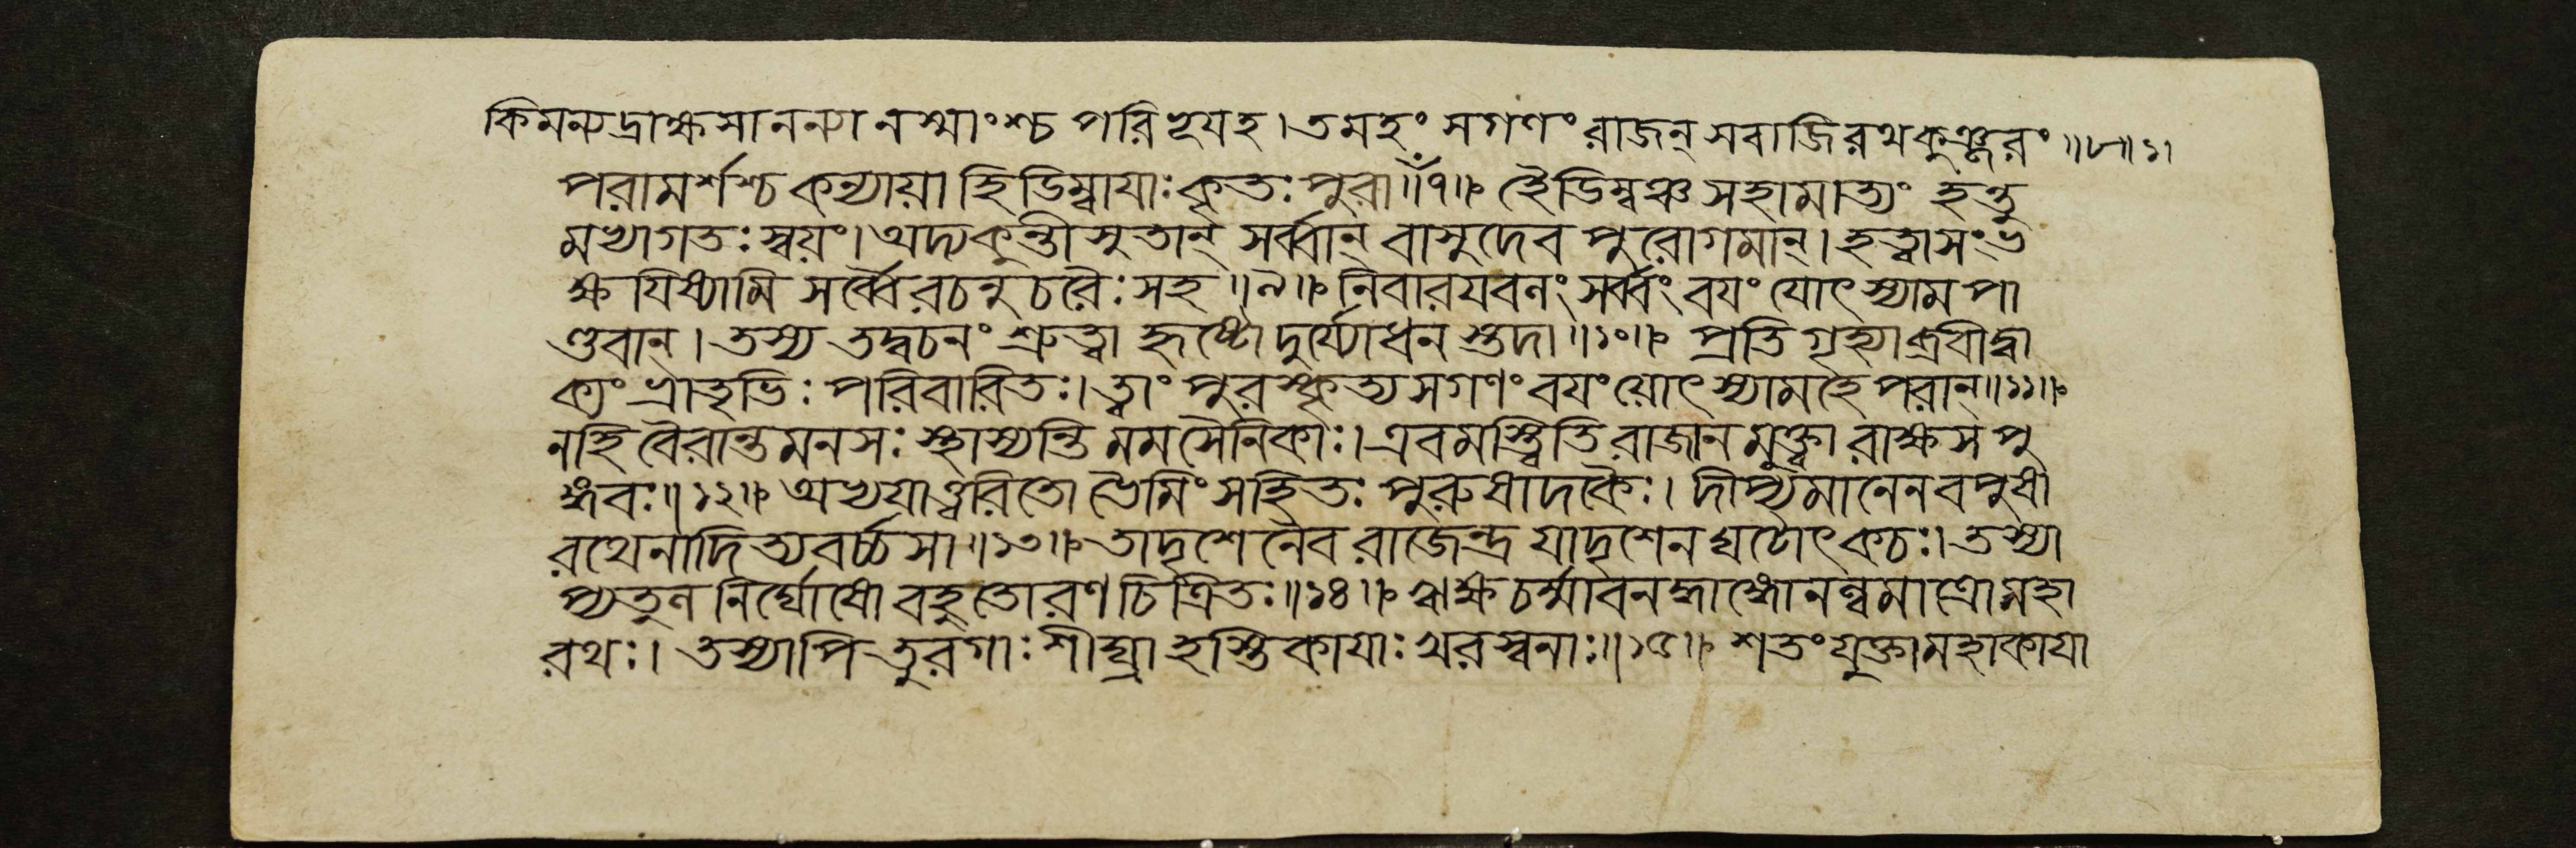 কিমন্যদ্রাক্ষসানন্যানস্মাংশ্চ পরিভূয়হ। তমহং সগণং রাজন্ সবাজিরথকুঞ্জরং॥৮॥১।
পরামর্শশ্চ কন্যায়া হিডিম্বায়াঃ কৃতঃ পুরা॥৭॥ হৈডিম্বঞ্চ সহামাত্যং হন্তু
মভ্যাগতঃ স্বয়ং। অদ্য কুন্তীসুতান্ সর্ব্বান্ বাসুদেব পুরোগমান্। হত্বা সংভ
ক্ষয়িষ্যামি সর্ব্বৈরচনুচরৈঃ সহ॥৯॥ নিবারয়বনং সর্ব্বং বয়ং যোৎস্যাম পা
ণ্ডবান্। তস্য তদ্বচনং শ্রুত্বা হৃষ্টো দুর্য্যোধনস্তদা॥১০॥ প্রতিগৃহ্যাব্রবীদ্বা
ক্যং ভ্রাতৃভিঃ পরিবারিতঃ। ত্বাং পুরস্কৃত্য সগণং বয়ং যোৎস্যামহে পরান্॥১১॥
নহি বৈরান্তমনসঃ স্থাস্যন্তি মম সৈনিকাঃ। এবমস্ত্বিতি রাজানমুক্ত্বা রাক্ষসপু
ঙ্গবঃ॥১২॥ অভ্যয়াত্ত্বরিতো ভৈমিং সহিতঃ পুরুষাদকৈঃ। দীপ্যমানেন বপুষা
রথেনাদিত্যবর্চ্চসা॥১৩॥ তাদৃশেনৈব রাজেন্দ্র যাদৃশেন ঘটোৎকচঃ। তস্যা
প্যতুন নির্ঘোষো বহুতোরণচিত্রিতঃ॥১৪॥ ঋক্ষচর্ম্মাবনদ্ধাঙ্গো নল্বমাত্রো মহা
রথঃ। তস্যাপি তুরগাঃ শীঘ্রা হস্তিকায়াঃ খরস্বনাঃ॥১৫॥ শতং যুক্তা মহাকায়া